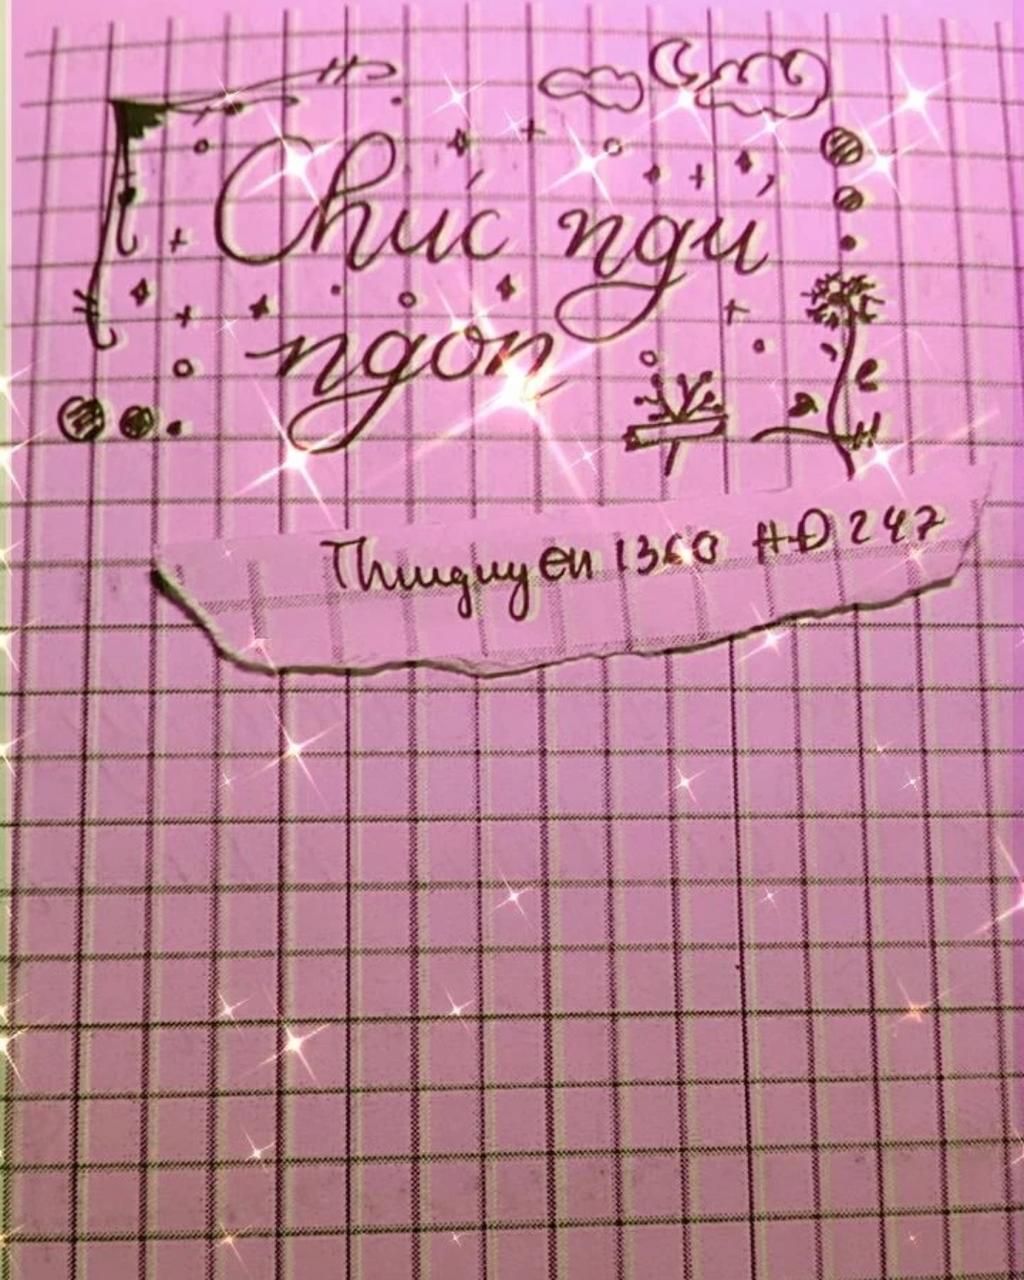 Chúc ngủ
ngon
Thuuguyen 1360 HĐ 247